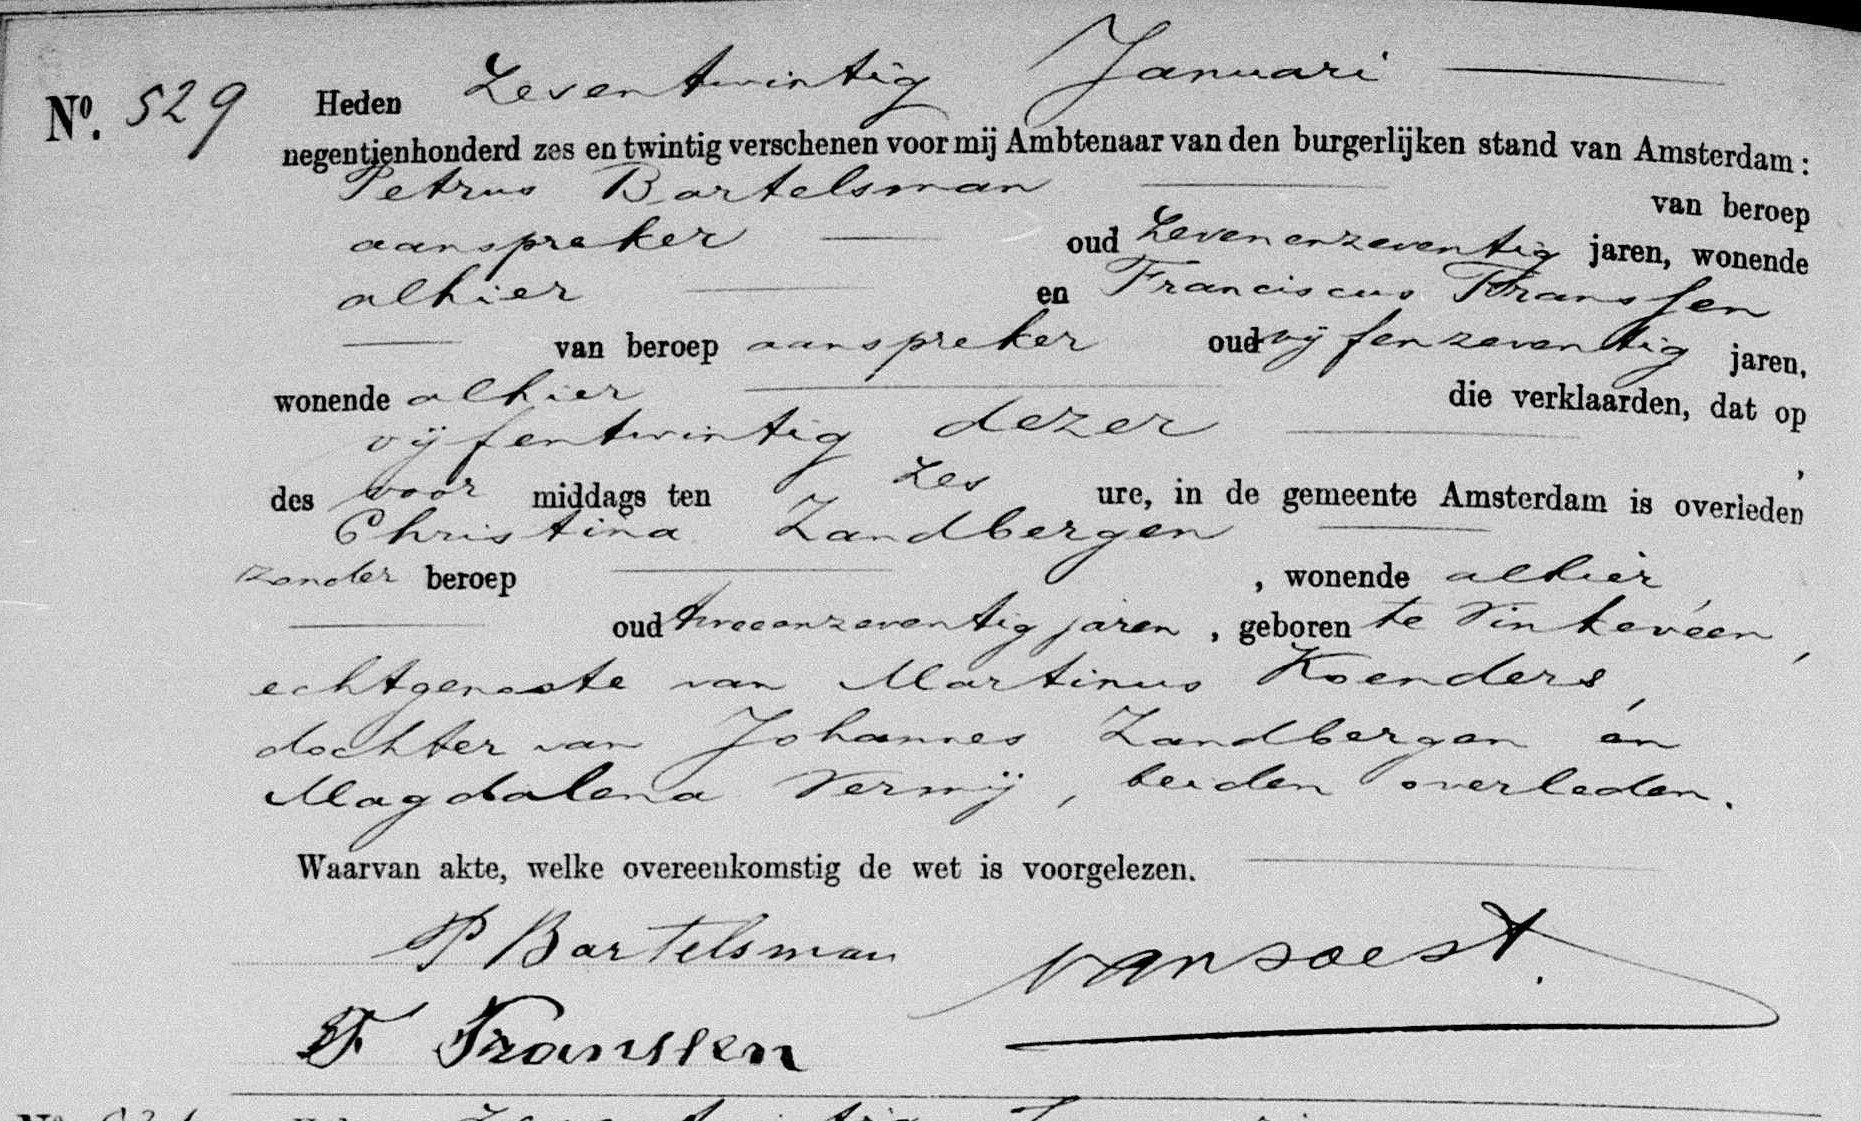 No. 529
Heden Zeventwintig Januari
negentienhonderd zes en twintig verschenen voor mij Ambtenaar van den burgerlijken stand van Amsterdam:
Petrus Bartelsman van beroep
aanspreker oud zevenenzeventig jaren, wonende
alhier en Franciscus Franssen
van beroep aanspreker oud vijfenzeventig jaren,
wonende alhier die verklaarden, dat op
vijfentwintig dezer,
des voor middags ten zes ure, in de gemeente Amsterdam is overleden
Christina Zandbergen
zonder beroep, wonende alhier,
oud tweeenzeventig jaren, geboren te Vinkeveen,
echtgenoote van Martinus Koenders,
dochter van Johannes Zandbergen en
Magdalena Vermij, beiden overleden.
Waarvan akte, welke overeenkomstig de wet is voorgelezen.
P Bartelsman
van Soest.
F Franssen